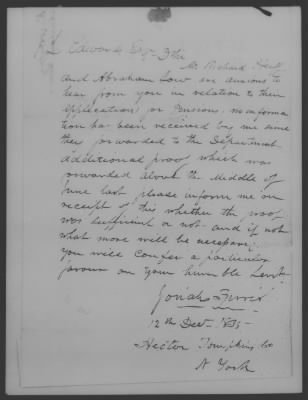 L Edwards Esqr Sir
Mr Richard Huff
and Abraham Low are anxious to
hear from you in relation to their
applications for Pensions. no informa
tion has been received by me since
they forwarded to the Department
additional proof which was
forwarded about the Middle of
June last please inform me on
receipt of this whether the proof
was sufficient or not and if not
what more will be necessary.
you will Confer a particular
favour on your humble Servt.
Josiah
12th Decr
Hector Tompkins Co
N York